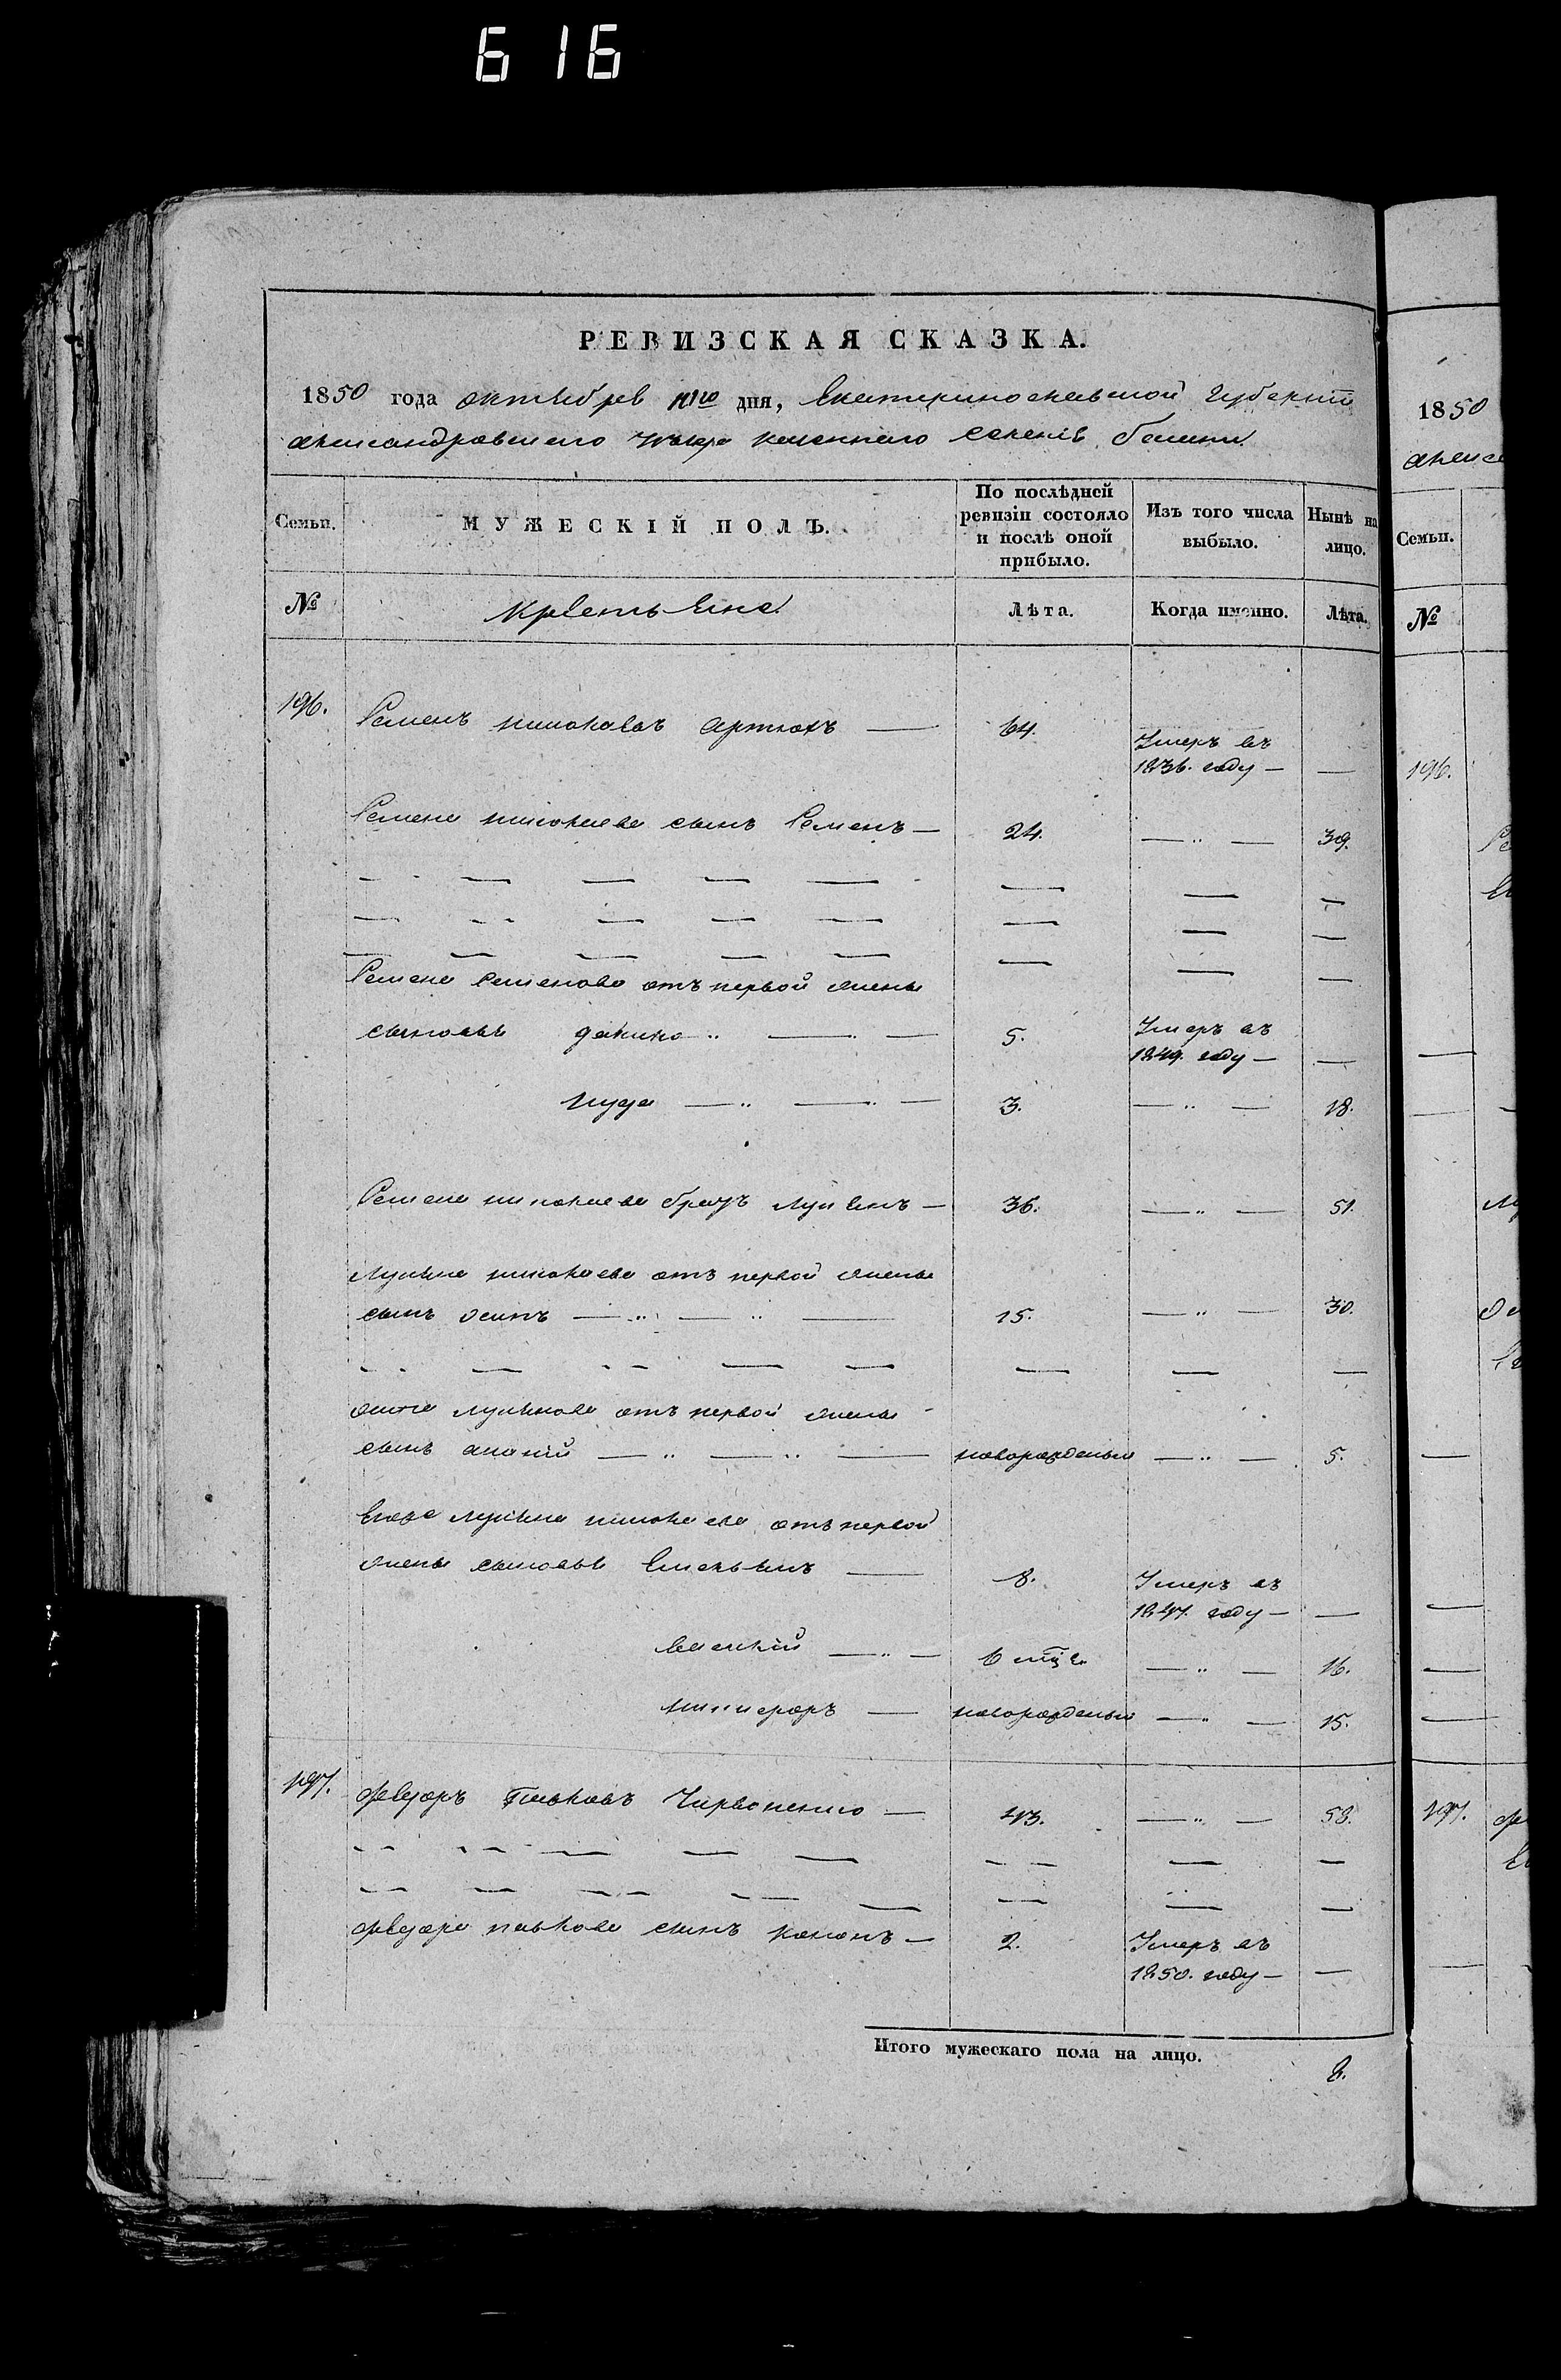 616
РЕВИЗСКАЯ СКАЗКА.
1850 года октября дня, Екатеринославской губерніи
александровскаго уезда казеннаго селенія белики
Семьи. МУЖЕСКІЙ ПОЛЪ. По послѣдней ревизіи состояло и послѣ оной прибыло. Изъ того числа выбыло. Нынѣ на лицо.
№ Крестьяне Лѣта. Когда именно. Лѣта.
196. Семенъ николаевъ артюхъ — 64. Умеръ въ
1836. году — —
Семена николаева сынъ Семенъ — 24. — „ — 39.
Семена Семенова отъ первой жены
сыновья данило „ — — 5. Умеръ въ
1849. году — —
иуда — „ — „ — 3. — „ — 18.
Семена николаева братъ лукьянъ — 36. — „ — 51.
лукьяна николаева отъ первой жены
сынъ осипъ — „ — „ — 15. — „ — 30.
осипа лукьянова отъ первой жены
сынъ ананій — „ — „ — новорожденый — „ — 5.
Егожъ лукьяна николаева отъ первой
жены сыновья Емельянъ — 8. Умеръ въ
1847. году — —
Василій — „ — 6 мцъ. — „ — 16.
никифоръ — новорожденый — „ — 15.
197. Федоръ павловъ Червоненко — 43. — „ — 58.
Федора павлова сынъ кононъ — 2. Умеръ въ
1850. году — —
Итого мужескаго пола на лицо. 8.
1850
Семьи.
№
196.
197.